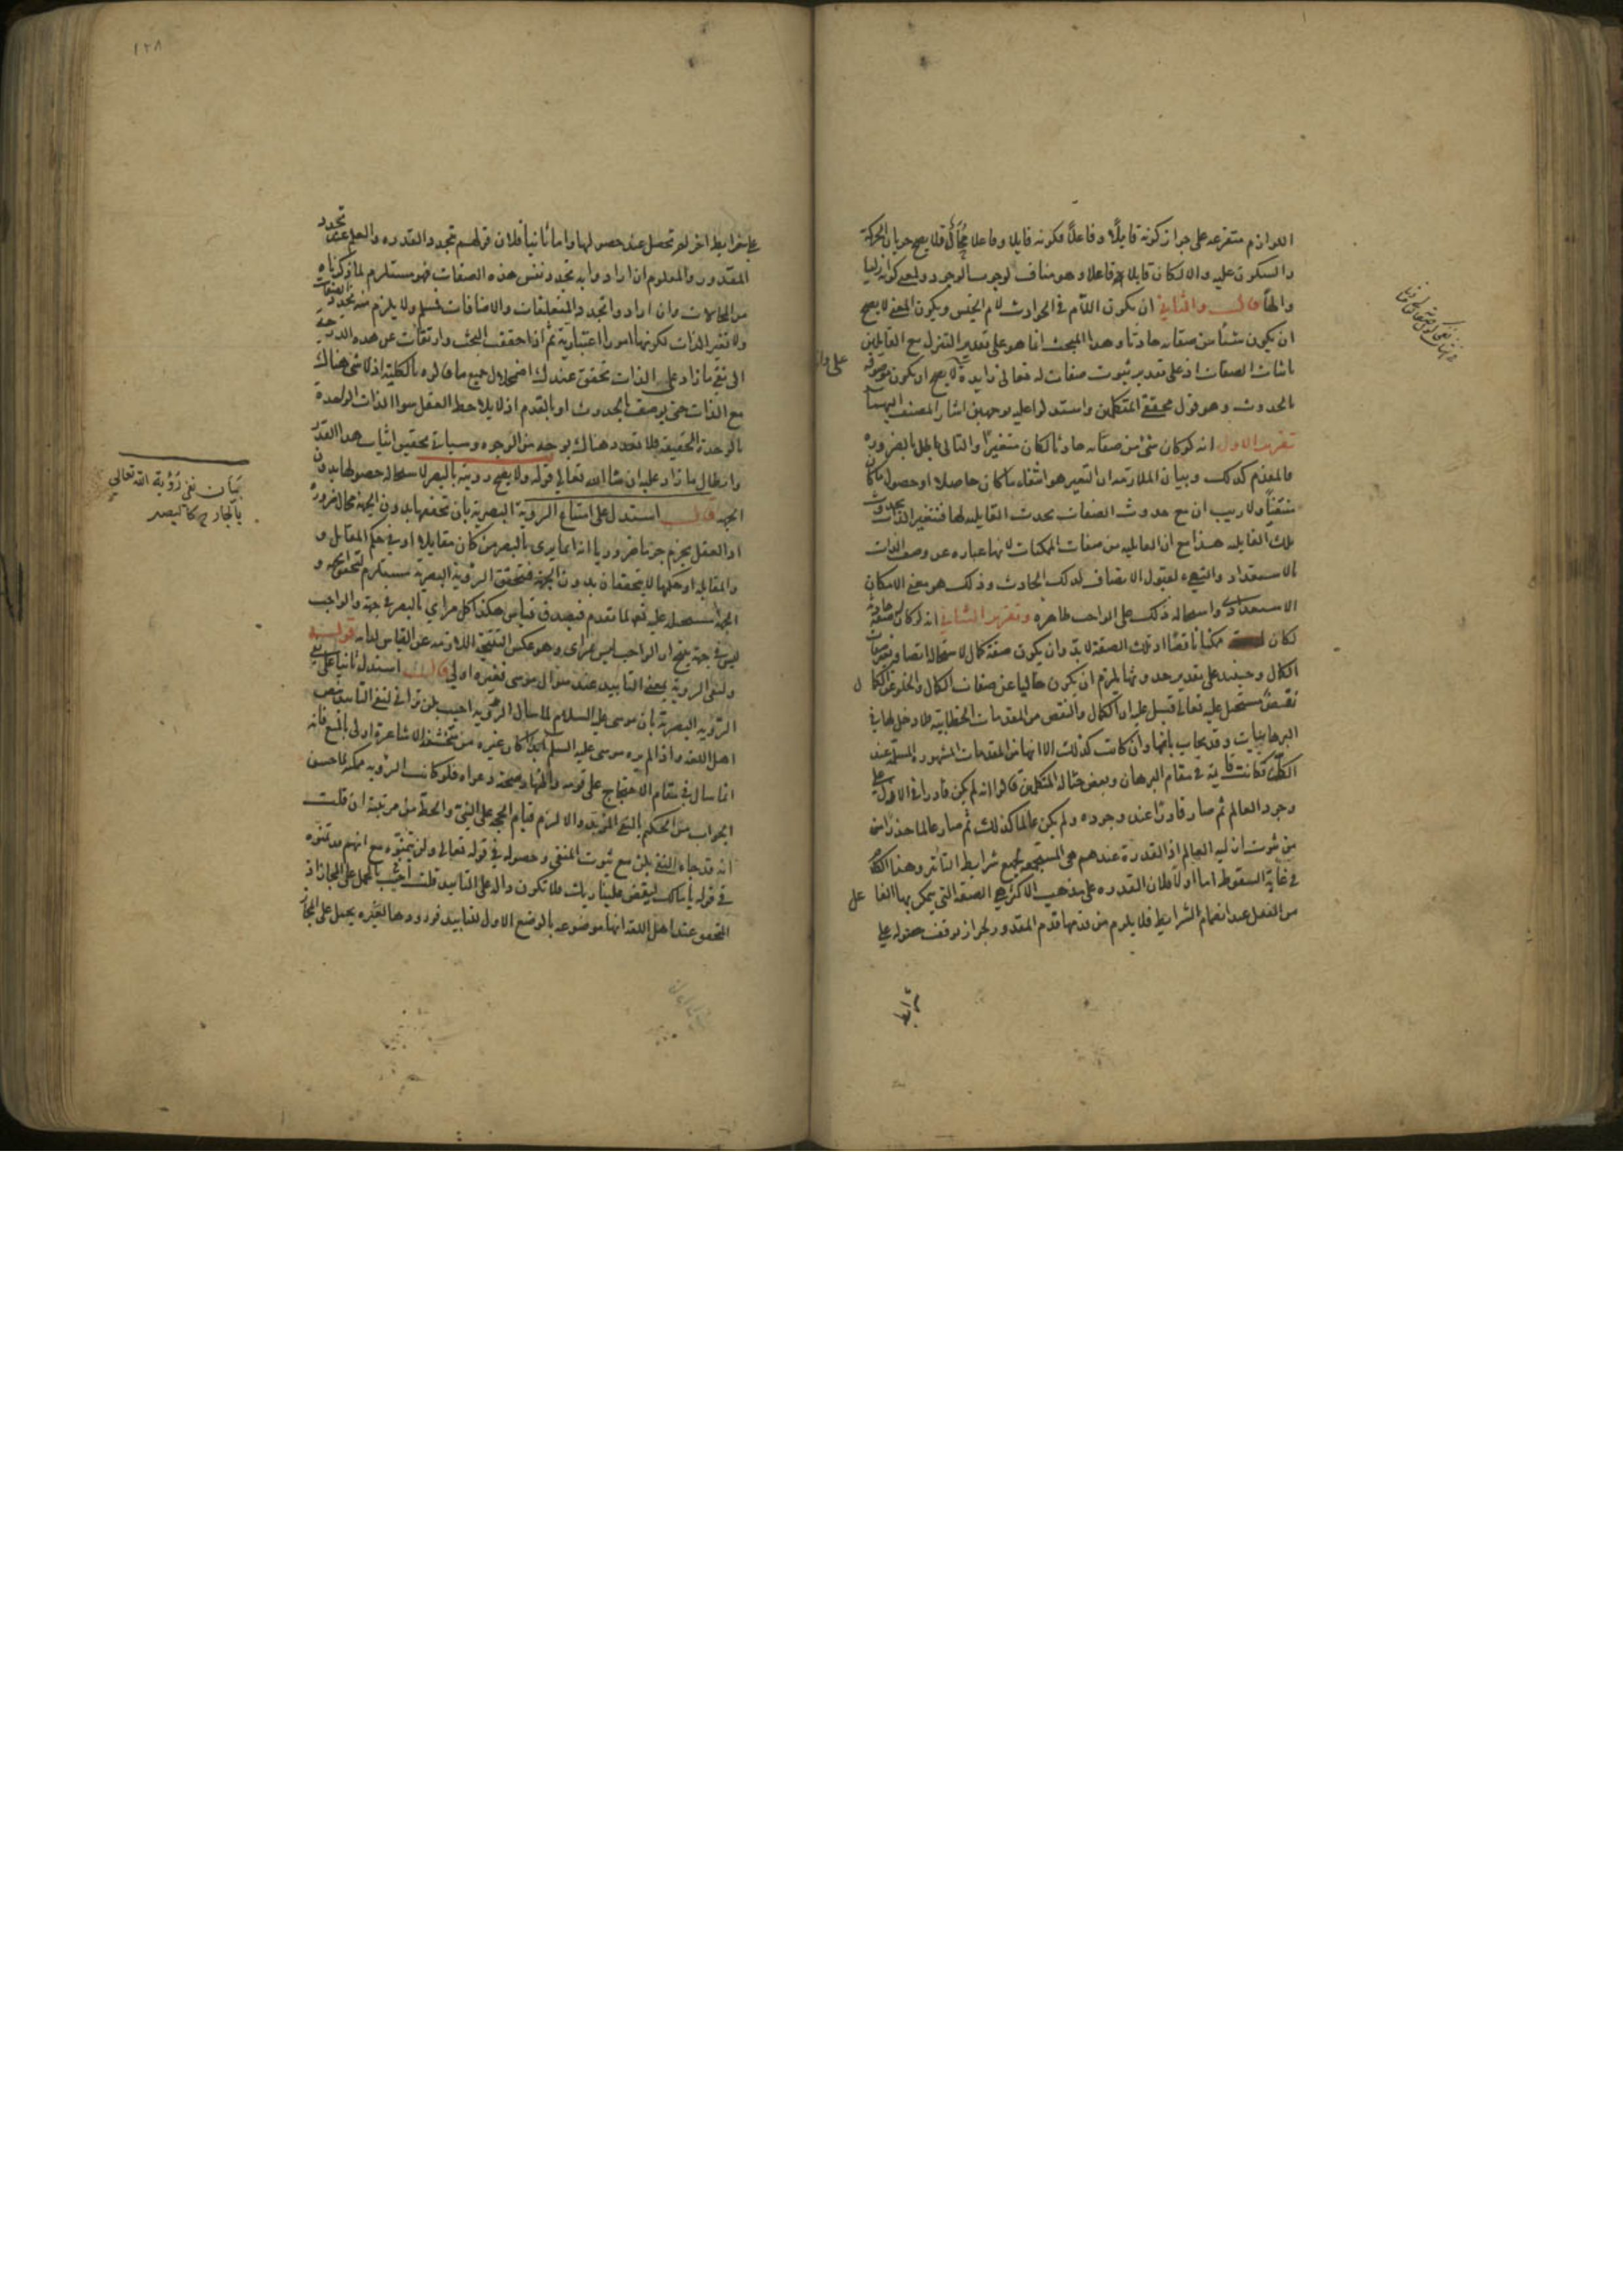 اللوازم متفرعه على جواز كونه قابلًا وفاعلًا فكونه قابلا وفاعلا محال فلا يصح جريان الحركة
والسكون عليه والا لكان قابلا وفاعلا وهو مناف لوجوب الوجود ولمعنى كونه ازليا
والهًا قال والثاني ان يكون اللام في الحوادث لام الجنس ويكون المعنى لا يصح
ان يكون شئا من صفاته حادثا وهذا المبحث انما هو على تقدير التنزل مع القايلين
باثبات الصفات اذ على تقدير ثبوت صفات له تعالى زايدة لا يصح ان يكون موصوفه
بالحدوث وهو قول محققي المتكلمين واستدلوا عليه بوجهين اشار المصنف اليهما
تقرير الاول انه لو كان شئ من صفاته حادثا لكان متغيرًا والتالي باطل بالضرورة
فالمقدم كذلك وبيان الملازمه ان التغير هو انتفاء ما كان حاصلا او حصول ما كان
منتفيًا ولا ريب ان مع حدوث الصفات يحدث القابليه لها فتتغير الذات بحدوث
تلك القابليه هذا مع ان القابليه من صفات الممكنات لانها عباره عن وصف الذات
بالاستعداد والتهيء لقبول الاتصاف لذلك الحادث وذلك هو معنى الامكان
الاستعدادي واستحاله ذلك على الواجب ظاهره وتقرير الثاني انه لو كان له صفة حادثة
لكان ممكنا ناقصًا اذ تلك الصفة لا بد وان يكون صفة كمال لاستحاله اتصافه بغير صفات
الكمال وحينئذ على تقدير حدوثها يلزم ان يكون خاليا عن صفات الكمال والخلو عن الكمال
نقص مستحيل عليه تعالى قيل عليه ان الكمال والنقص من المقدمات الخطابية فلا دخل لها في
البرهانيات وقد يجاب بانها وان كانت كذلك الا انها من المقدمات المشهورة المسلمة عند
الكل فكانت قايمة في مقام البرهان وبعض مثاله المتكلمين قالوا انه لم يكن قادرا في الازل على
وجود العالم ثم صار قادرًا عند وجوده ولم يكن عالما كذلك ثم صار عالما حذرًا من
من ثبوت ازليه العالم اذ القدرة عندهم هي المستجمعة لجميع شرايط التأثر وهذا الكلام
في غاية السقوط اما اولا فلان القدره على مذهب الاكثر هي الصفه التي يتمكن بها الفاعل
من الفعل عند انضمام الشرايط فلا يلزم من قدمها قدم المقدور لجواز توقف حصوله على
شرايط
١٢٨
على شرايط اخر لم تحصل عند حصولها واما ثانيا فلان قولهم تجدد القدره والعلم عند تجدد
المقدور والمعلوم ان ارادوا به تجدد نفس هذه الصفات فهو مستلزم لما ذكرناه
من المحالات وان ارادوا تجدد المتعلقات والاضافات فمسلم ولا يلزم منه تجدد الصفات
ولا تغير الذات لكونها امورا اعتبارية ثم اذا حققت البحث وارتقات عن هذه الدرجة
الى نفي ما زاد على الذات تحقق عندك اضمحلال جميع ما قالوه بالكلية اذ لا شئ هناك
مع الذات حتى يوصف بالحدوث او بالقدم اذ لا يلاحظ العقل سوا الذات الواحدة
بالوحدة الحقيقيه فلا تعدد هناك بوجه من الوجوه وسياتي تحقيق اثبات هذا القدر
وابطال ما زاد عليه ان شا الله تعالى قوله ولا يصح رويته بالبصر لاستحاله حصولها بدون
الجهه قال استدل على امتناع الروية البصرية بان تحققها بدون الجهة محال ضرورة
اذ العقل يجزم جزما ضروريا انه انما يرى بالبصر من كان مقابلا او في حكم المقابل و
والمقابله او حكمها لا يتحققان بدون الجهة فتحقق الرؤية البصرية مستلزم لتحقق الجهه و
الجهة مستحيله عليه تعالى لما تقدم فيصدق قياس هكذا كل مرأي بالبصر في جهة والواجب
ليس في جهة ينتج ان الواجب ليس بمرأى وهو عكس النتيجة اللازمه عن القياس لذاته قوله
ولنفي الروية بمعنى التابيد عند سؤال موسى فغيره اولى قال استدل ثانيا على نفي
الرؤية البصرية بان موسى عليه السلام لما سال الرؤية اجيب بلن تراني لنفي التابيد بنص
اهل اللغه واذا لم يره موسى عليه السلم ابدًا كان غيره من متخشفة الاشاعرة اولى بالمنع فانه
انما سال في مقام الاحتجاج على قومه واظهار صحة دعواه فلو كانت الرؤيه ممكنه لما حسن
الجواب من الحكيم بالنفي المؤبد والا لزم قيام الحجه على النبي وانحط من مرتبته ان قلت
انه قد جاء النفي بلن مع ثبوت المنفي وحصوله في قوله تعالى ولن يتمنوه مع انهم قد تمنوه
في قوله يا مالك ليقض علينا ربك فلا تكون داله على التابيد قلت اجيب بالحمل على المجاز اذ
المتحقق عند اهل اللغه انها موضوعه بالوضع الاول للتابيد فورودها لغيره يحمل على المجاز
بيان نفي رؤية الله تعالى
بالجارحه كالبصر